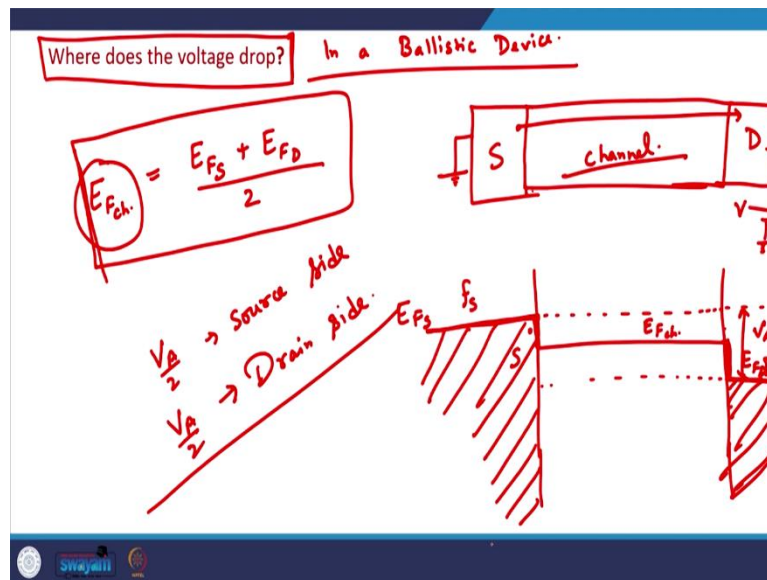 Where does the voltage drop? In a Ballistic Device.
E_Fch. = E_FS + E_FD / 2
S channel. D
V
V_A/2 → Source side
V_A/2 → Drain side.
E_FS f_S
E_Fch.
S
swayam